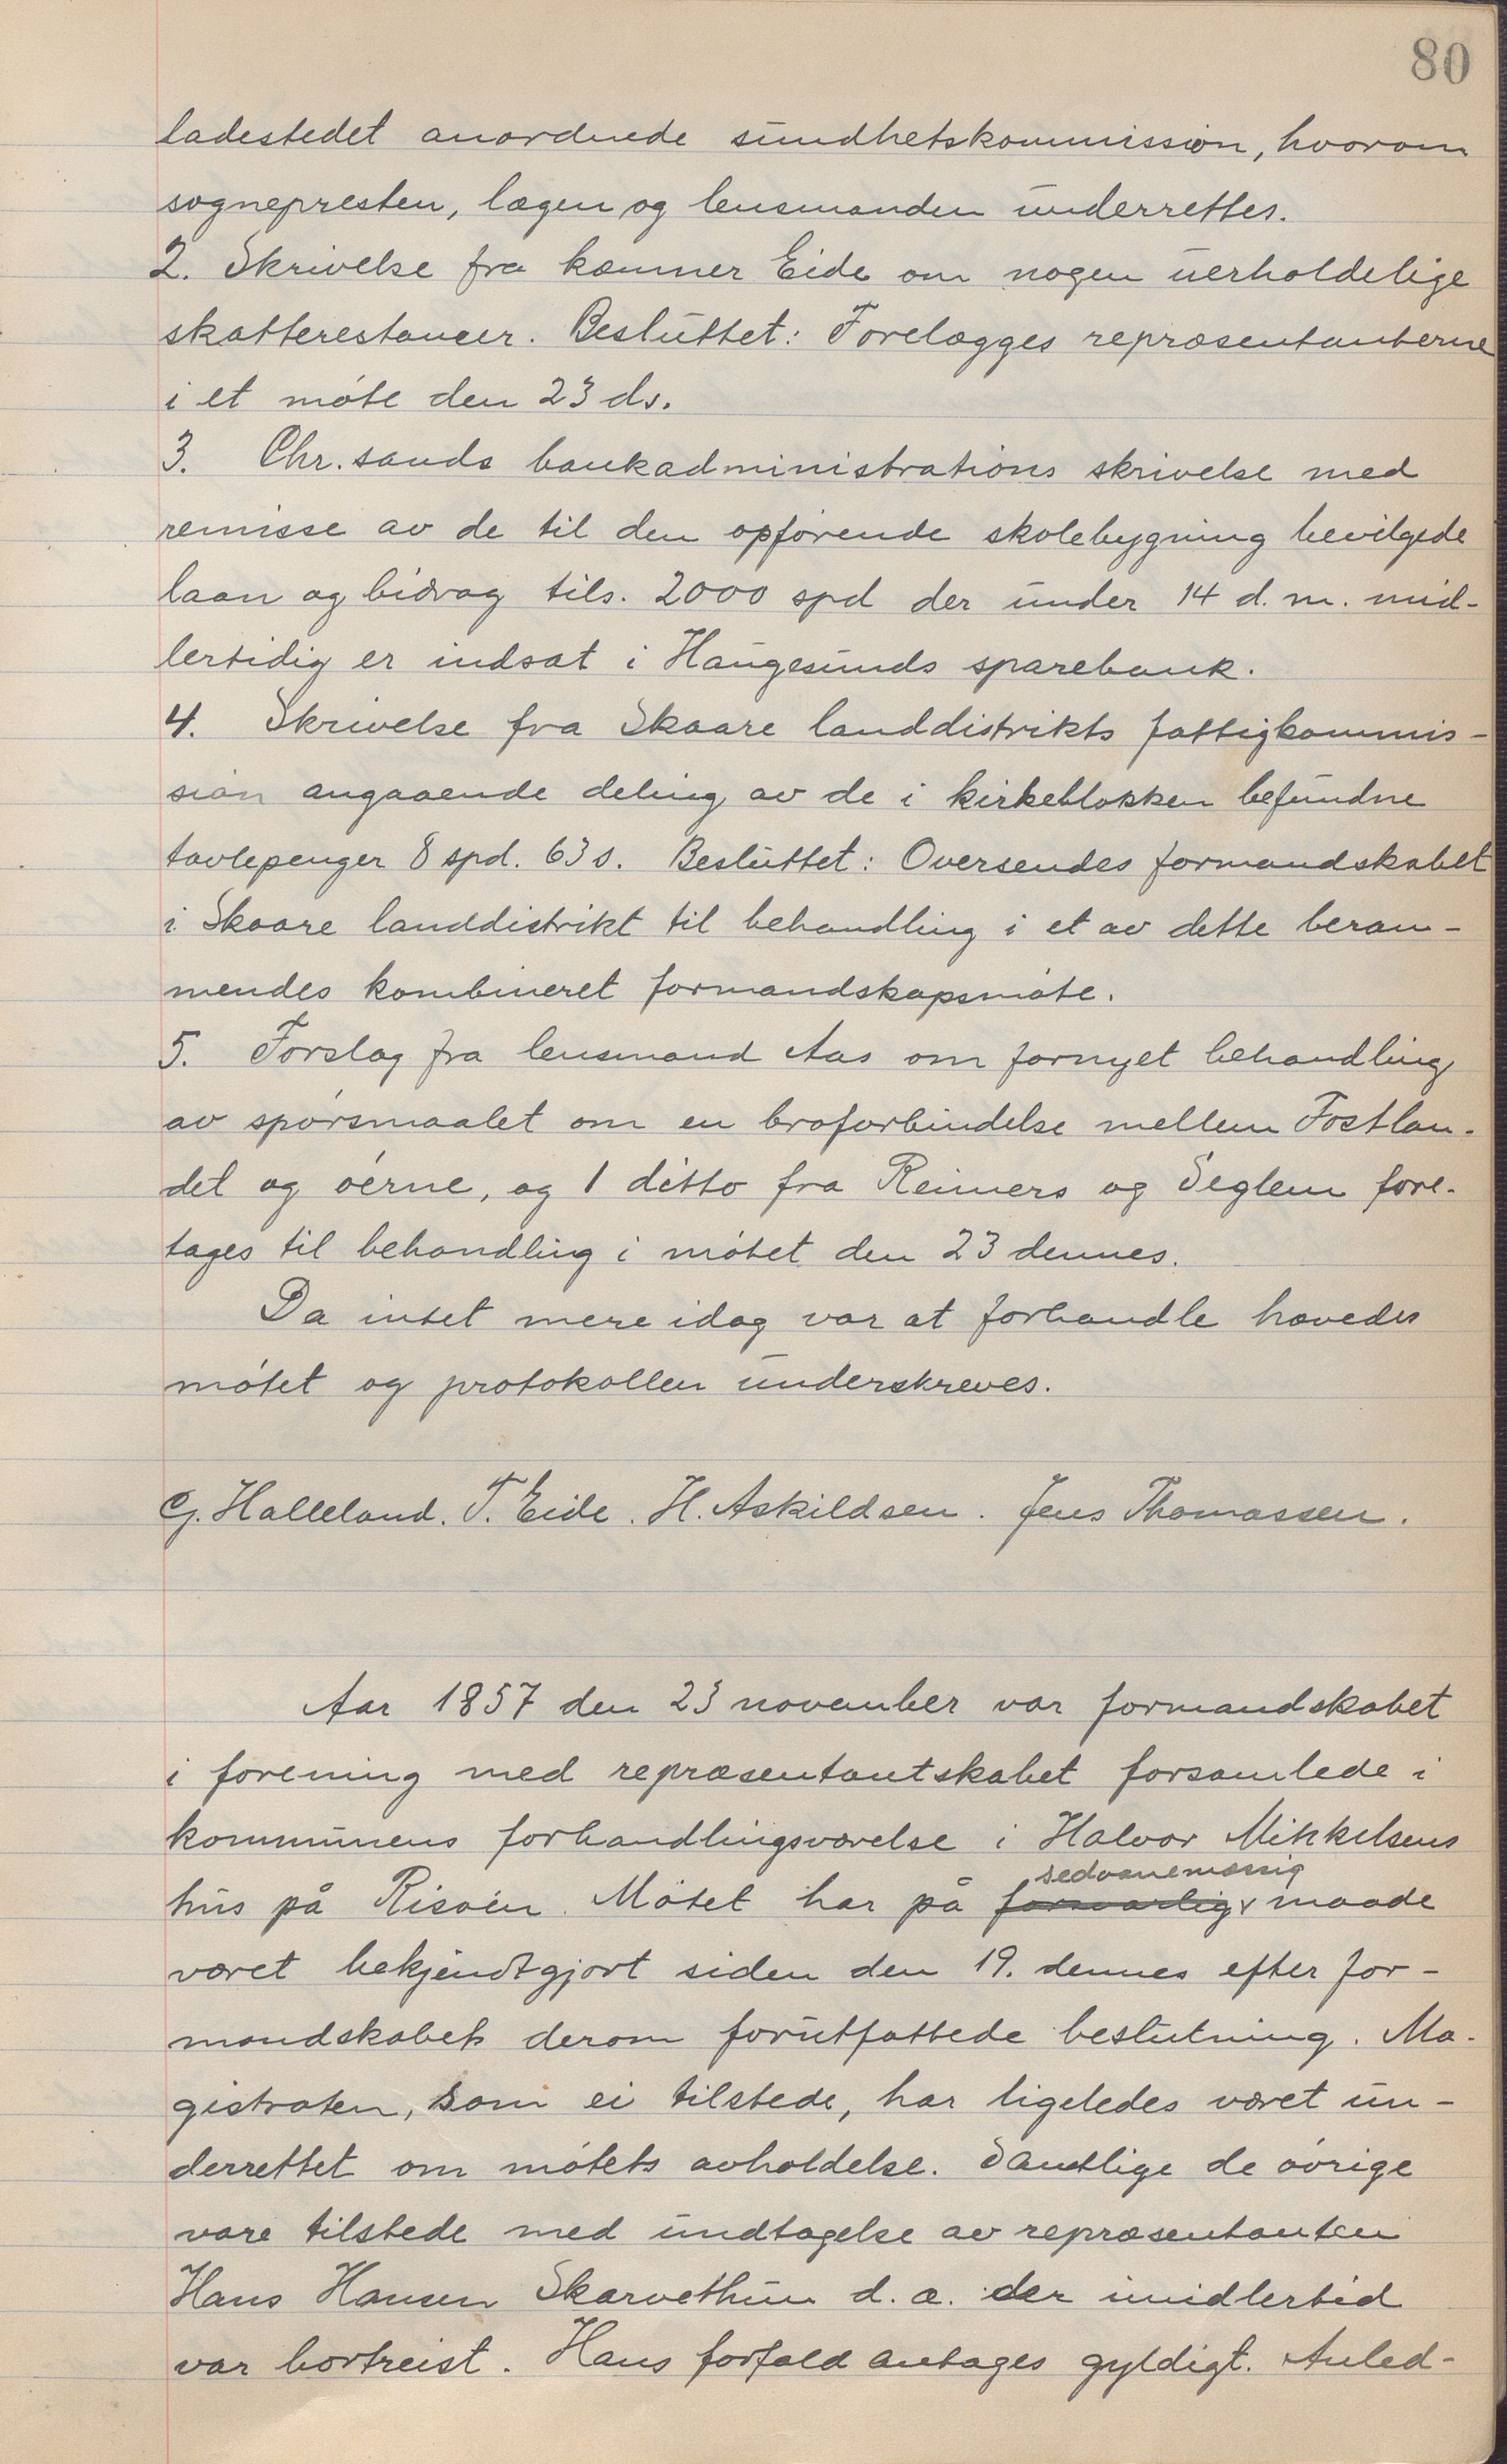 80
ladestedet anordnede sundhetskommission, hvorom
sognepresten, lægen og lensmanden underrettes.
2. Skrivelse fra kæmner Eide om nogen uerholdelige
skatterestancer. Besluttet: Forelægges repræsentanterne
i et möte den 23 ds.
3. Chr.sands bankadministrations skrivelse med
remisse av de til den opförende skolebygning bevilgede
laan og bidrag tils. 2000 spd der under 14 d. m. mid-
lertidig er indsat i Haugesunds sparebank.
4. Skrivelse fra Skaare landdistrikts fattigkommis-
sion angaaende deling av de i kirkeblokken befundne
tavlepenger 8 spd. 63 s. Besluttet: Oversendes formandskabet
i Skaare landdistrikt til behandling i et av dette beram-
mendes kombineret formandskapsmöte.
5. Forslag fra lensmand Aas om fornyet behandling
av spörsmaalet om en broforbindelse mellem Fastlan-
det og öerne, og 1 ditto fra Reimers og Seglem fore-
tages til behandling i mötet den 23 dennes.
Da intet mere idag var at forhandle hævedes
mötet og protokollen underskreves.
G. Halleland. T. Eide. H. Askildsen. Jens Thomassen.
Aar 1857 den 23 november var formandskabet
i forening med repræsentantskabet forsamlede i
kommunens forhandlingsværelse i Halvor Mikkelsens
sedvanemæssig
hus på Risöen. Mötet har på forsvarlig maade
været bekjendtgjort siden den 19. dennes efter for-
mandskabets derom forutfattede beslutning. Ma-
gistraten, som ei tilstede, har ligeledes været un-
derrettet om mötets avholdelse. Samtlige de övrige
vare tilstede med undtagelse av repræsentanten
Hans Hansen Skarvethun d. æ. der imidlertid
var bortreist. Hans forfald antages gyldigt. Anled-